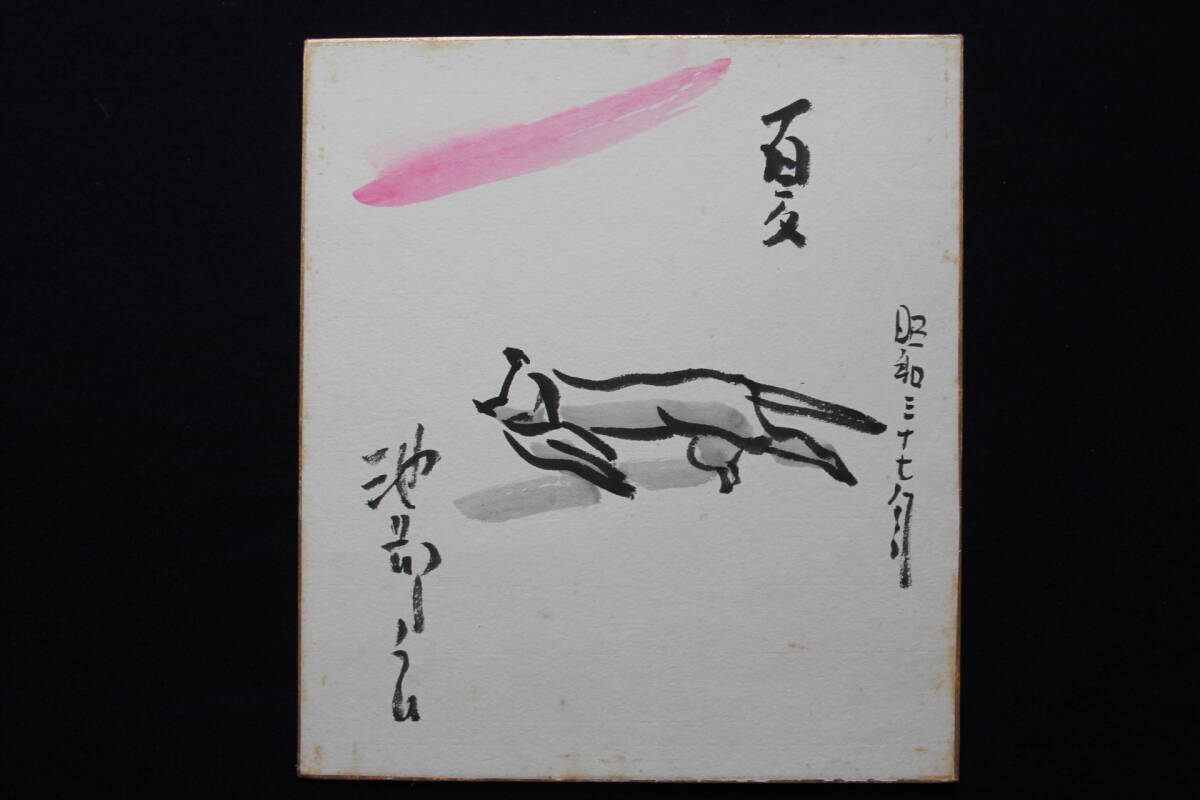 夏
昭和三十七年
池部良